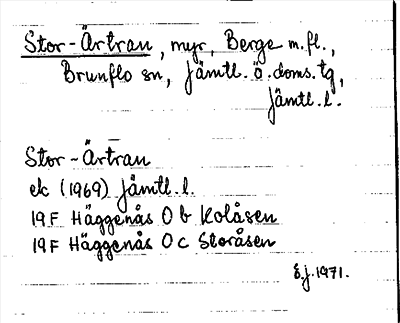 Stor-Ärtran, myr, Berge m.fl.,
Brunflo sn, Jämtl. ö. doms. tg,
Jämtl. l.
Stor-Ärtran
ek (1969) Jämtl. l.
19F Häggenås O b Kolåsen
19F Häggenås O c Storåsen
E.J. 1971.